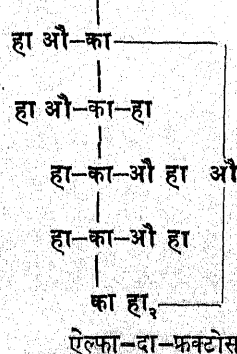 हा औ–का
हा औ–का–हा
हा–का–औ हा औ
हा–का–औ हा
का हा₂
ऐल्फा–दा–फ्रक्टोस